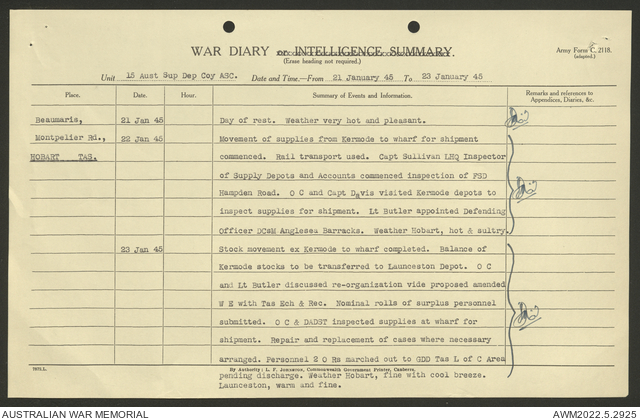 WAR DIARY or INTELLIGENCE SUMMARY.
(Erase heading not required.)
Army Form C. 2118.
(adapted.)
Unit 15 Aust Sup Dep Coy ASC. Date and Time.—From 21 January 45 To 23 January 45
Place. Date. Hour. Summary of Events and Information. Remarks and references to
Appendices, Diaries, &c.
Beaumaris, 21 Jan 45 Day of rest. Weather very hot and pleasant.
Montpelier Rd., 22 Jan 45 Movement of supplies from Kermode to wharf for shipment
HOBART TAS. commenced. Rail transport used. Capt Sullivan LHQ Inspector
of Supply Depots and Accounts commenced inspection of FSD
Hampden Road. O C and Capt Davis visited Kermode depots to
inspect supplies for shipment. Lt Butler appointed Defending
Officer DCsM Anglesea Barracks. Weather Hobart, hot & sultry.
23 Jan 45 Stock movement ex Kermode to wharf completed. Balance of
Kermode stocks to be transferred to Launceston Depot. O C
and Lt Butler discussed re-organization vide proposed amended
W E with Tas Ech & Rec. Nominal rolls of surplus personnel
submitted. O C & DADST inspected supplies at wharf for
shipment. Repair and replacement of cases where necessary
arranged. Personnel 2 O Rs marched out to GDD Tas L of C Area
By Authority: L. F. Johnston, Commonwealth Government Printer, Canberra.
pending discharge. Weather Hobart, fine with cool breeze.
Launceston, warm and fine.
AUSTRALIAN WAR MEMORIAL
AWM2022.5.2925